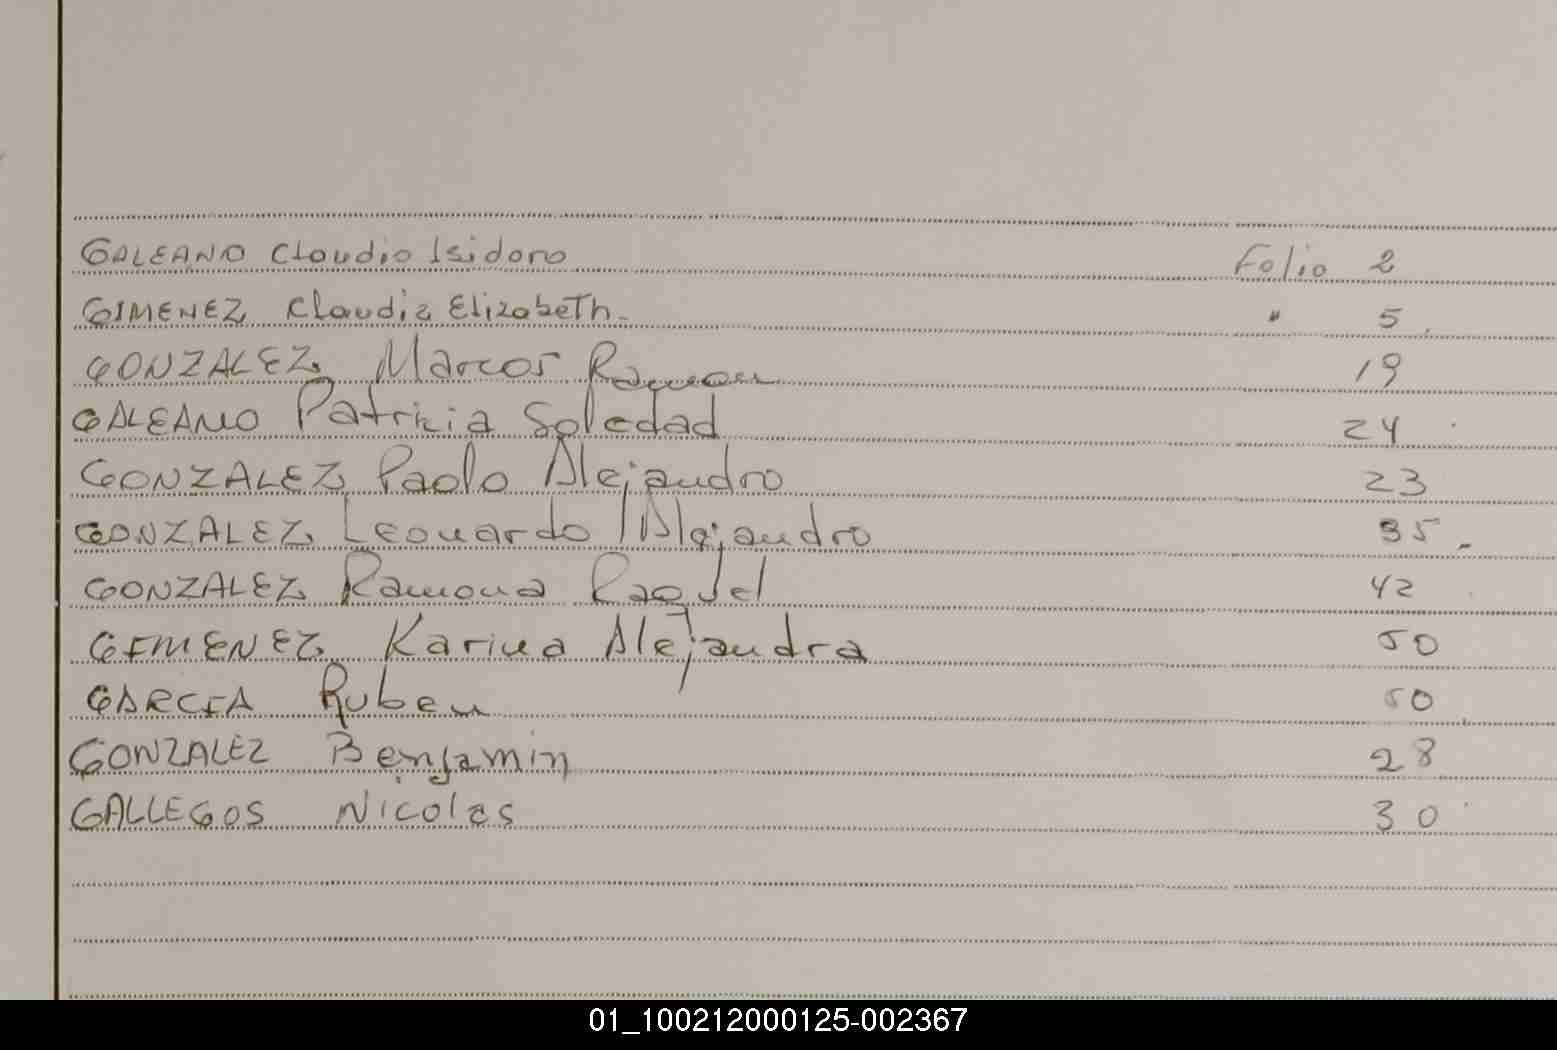 GALEANO Claudio Isidoro Folio 2
GIMENEZ Claudia Elizabeth. " 5.
GONZALEZ Marcos Ramon 19
GALEANO Patricia Soledad 24
GONZALEZ Paolo Alejandro 23
GONZALEZ Leonardo Alejandro 35.
GONZALEZ Ramona Raquel 42
GIMENEZ Karina Alejandra 50
GARCIA Ruben 50
GONZALEZ Benjamin 28
GALLEGOS Nicolas 30
01_100212000125-002367